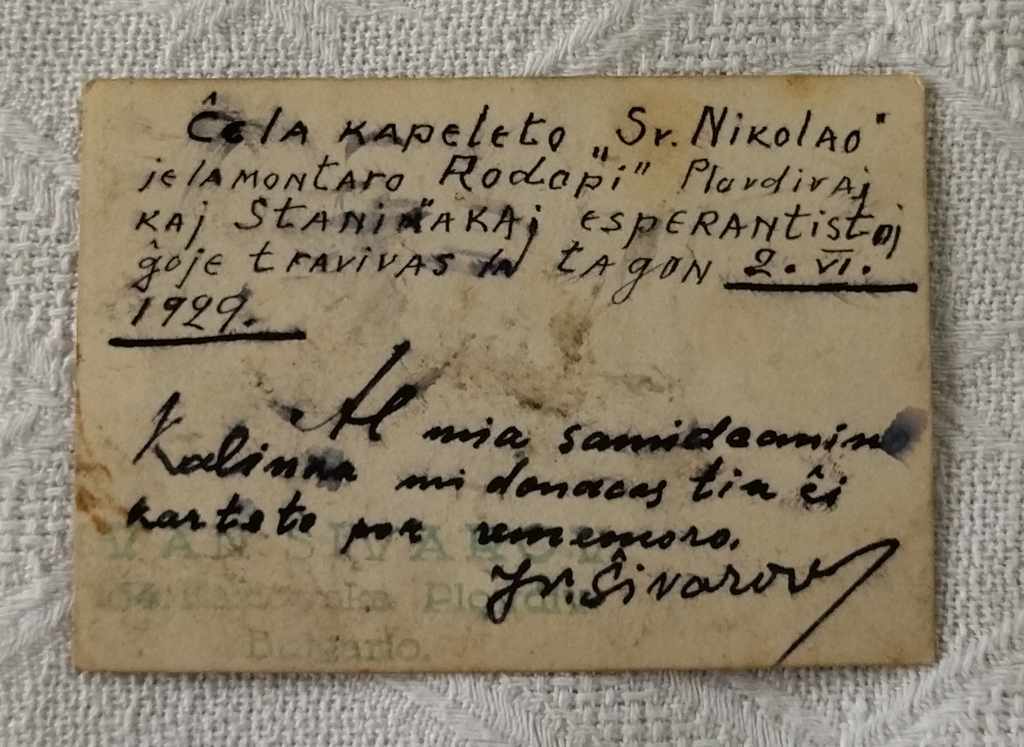 Ĉe la kapeleto „Sv. Nikolao"
je la montaro „Rodopi" Plovdivaj
kaj Stanimakaj esperantistoj
ĝoje travivas la tagon 2. VI.
1929.
Al mia samideanino
Kalinna mi donacas tiu ĉi
karteto por rememoro.
Iv. Ŝivarov
IVAN ŜIVAROV
Plovdiv
Bulgario.